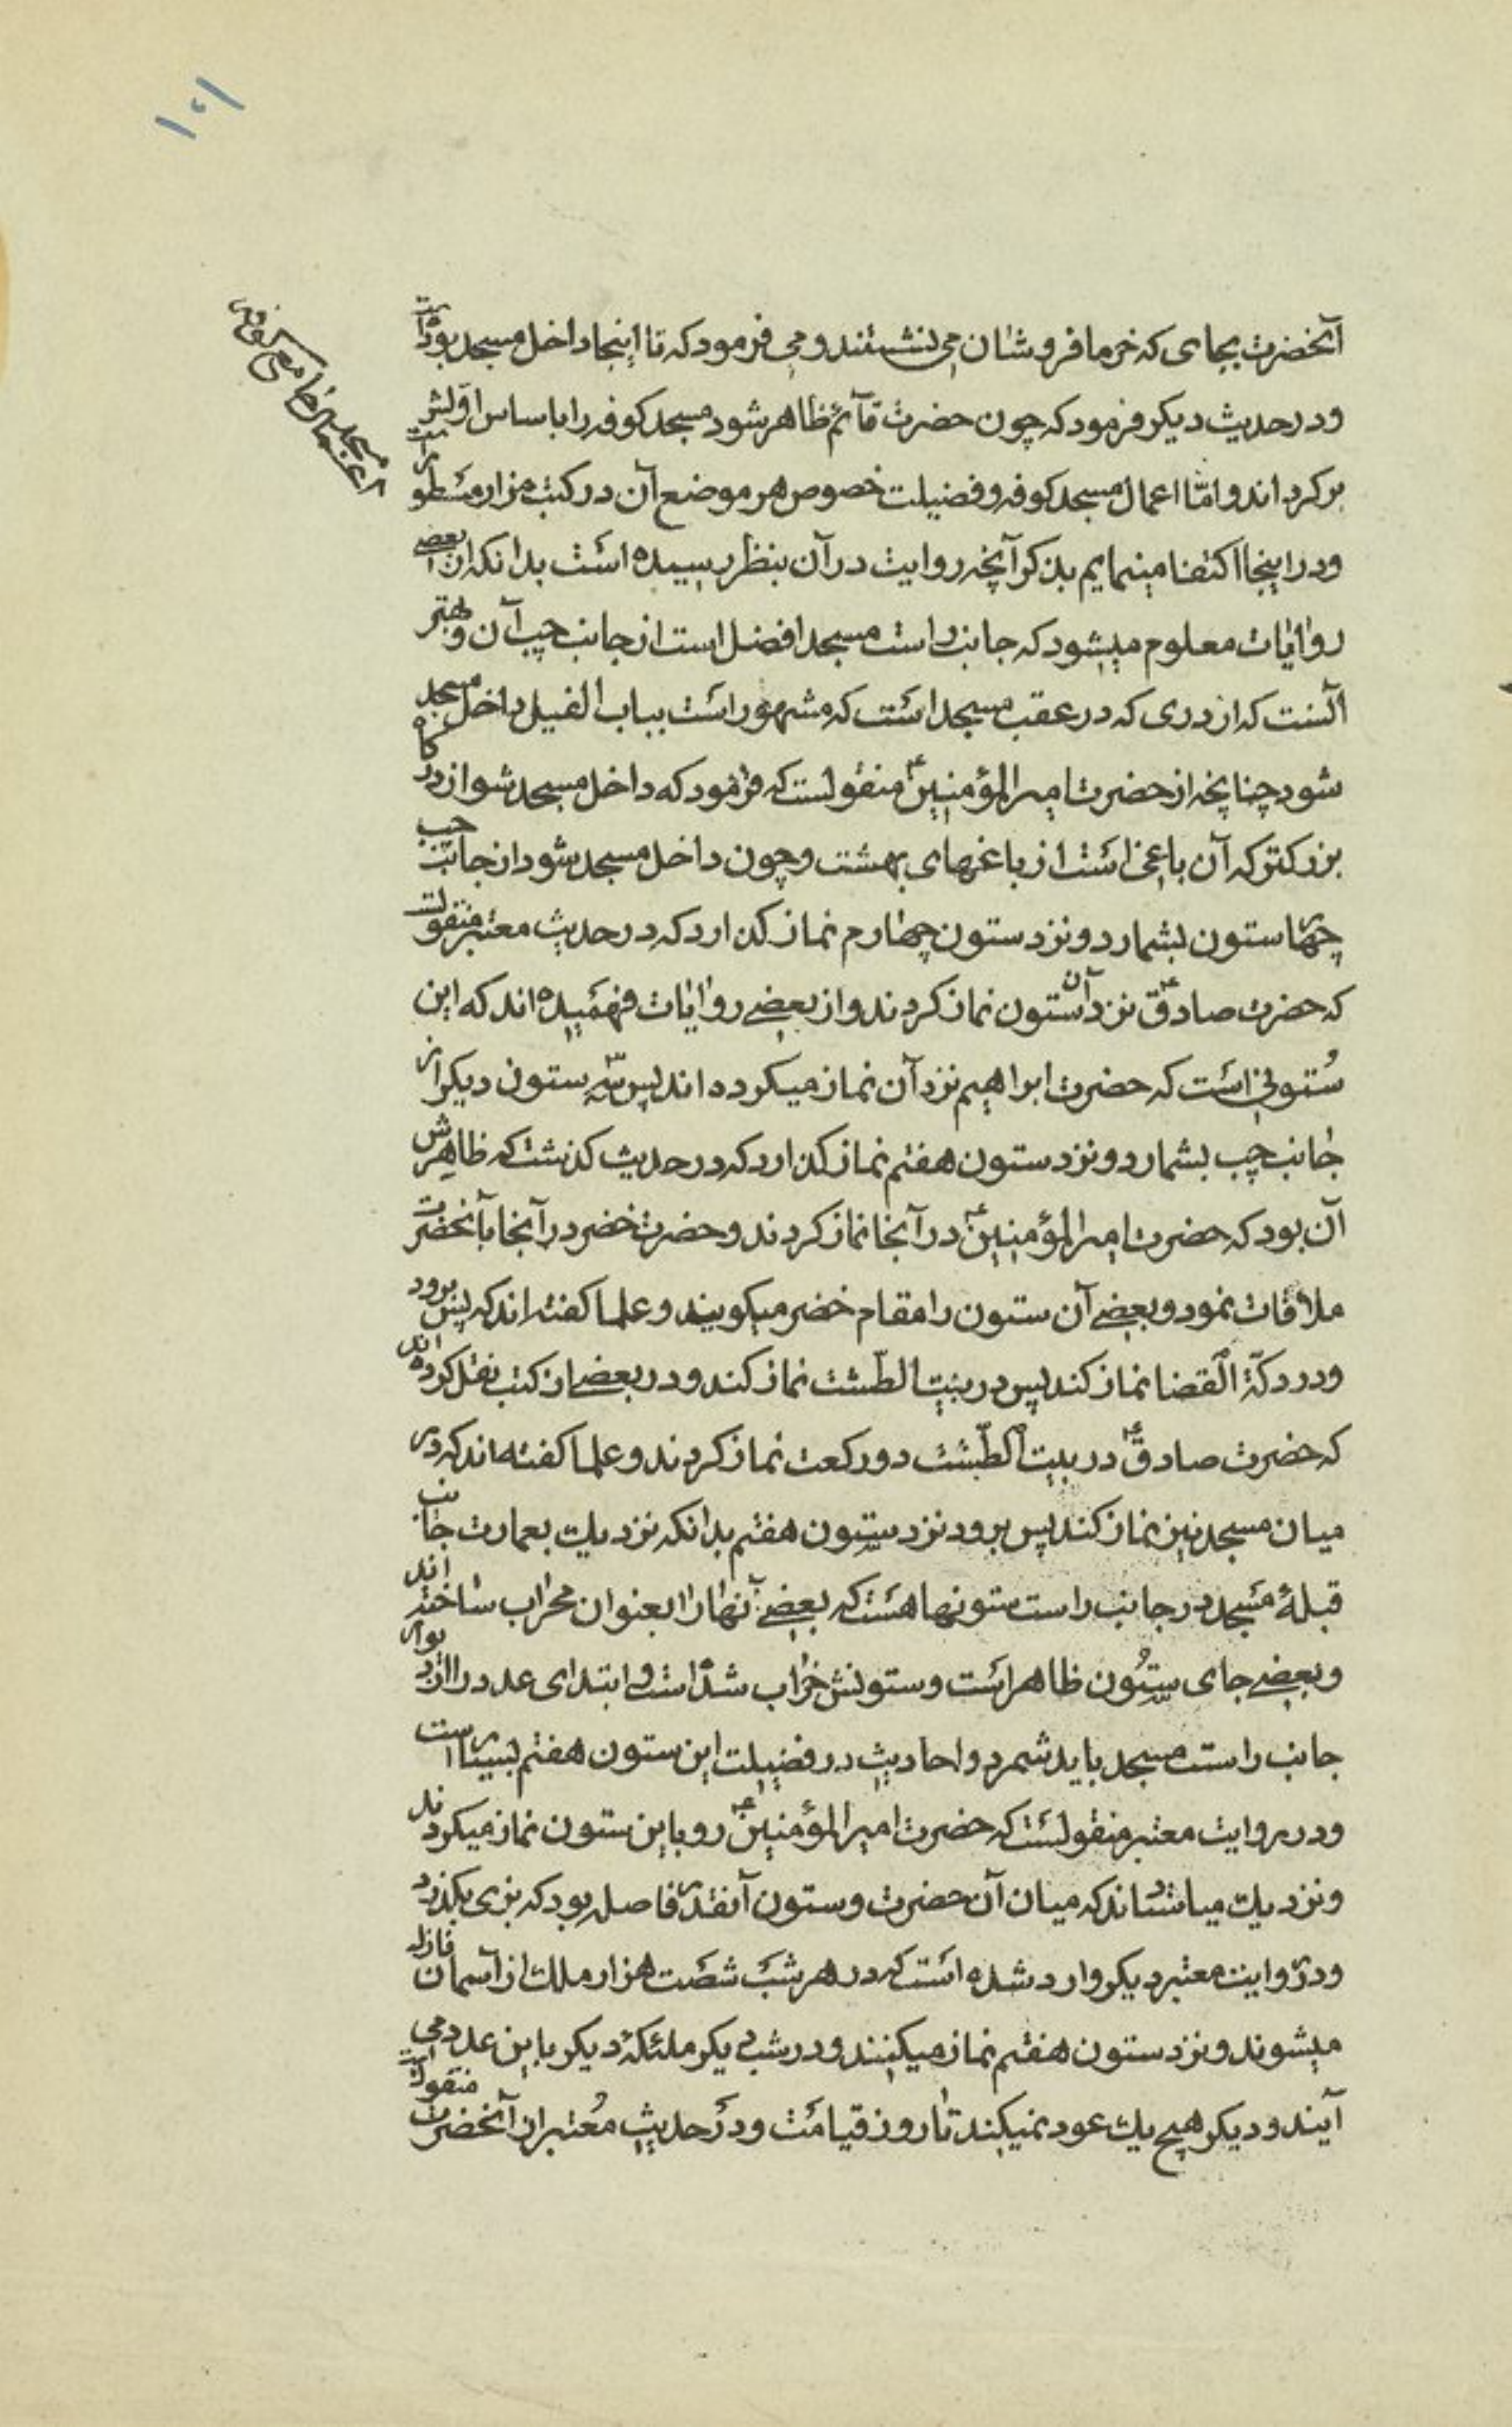 ۱۰۱
در اعمال مسجد جامع کوفه
آنحضرت بجای که خرما فروشان می نشستند و می فرمود که تا اینجا داخل مسجد بوده است
و در حدیث دیکر فرمود که چون حضرت قآئم ظاهر شود مسجد کوفه را باساس اوّلش
بر کرداند و امّا اعمال مسجد کوفه و فضیلت خصوص هر موضع آن در کتب مزار مسطور است
و در اینجا اکتفا مینمایم بذکر آنچه روایت در آن بنظر رسیده است بدانکه از بعضی
روایات معلوم میشود که جانب راست مسجد افضل است از جانب چپ آن و بهتر
آنست که از دری که در عقب مسجد است که مشهور است بباب الفیل داخل مسجد
شود چنانچه از حضرت امیر المؤمنین ع منقولست که فرمود که داخل مسجد شو از درکاه
بزرکتر که آن باغی است از باغهای بهشت و چون داخل مسجد شود از جانب چپ
چهار ستون بشمارد و نزد ستون چهارم نماز کذارد که در حدیث معتبر منقولست
که حضرت صادق ع نزد آن ستون نماز کردند و از بعضی روایات فهمیده اند که این
ستونی است که حضرت ابراهیم نزد آن نماز میکرده اند پس سه ستون دیکر از
جانب چپ بشمارد و نزد ستون هفتم نماز کذارد که در حدیث کذشت که ظاهرش
آن بود که حضرت امیر المؤمنین ع در آنجا نماز کردند و حضرت خضر در آنجا بآنحضرت
ملاقات نمود و بعضی آن ستون را مقام خضر میکویند و علما کفته اند که پس برود
و در دکّة القضا نماز کند پس در بیت الطّشت نماز کند و در بعضی از کتب نقل کرده اند
که حضرت صادق ع در بیت الطّشت دو رکعت نماز کردند و علما کفته اند که در
میان مسجد نیز نماز کند پس برود نزد ستون هفتم بدانکه نزدیک بعمارت جانب
قبلهٔ مسجد در جانب راست ستونها هست که بعضی آنها را بعنوان محراب ساخته اند
و بعضی جای ستون ظاهر است و ستونش خراب شده است و ابتدای عدد را از دیوار
جانب راست مسجد باید شمرد و احادیث در فضیلت این ستون هفتم بسیار است
و در روایت معتبر منقولست که حضرت امیر المؤمنین ع رو باین ستون نماز میکردند
و نزدیک میاستاده‌اند که میان آن حضرت و ستون آنقدر فاصله بود که بزی بکذرد
و در روایت معتبر دیکر وارد شده است که در هر شب شصت هزار ملک از آسمان نازل
میشوند و نزد ستون هفتم نماز میکنند و در شب دیکر ملئکهٔ دیکر باین عدد می
آیند و دیکر هیچ یک عود نمیکند تا روز قیامت و در حدیث معتبر از آنحضرت منقولست